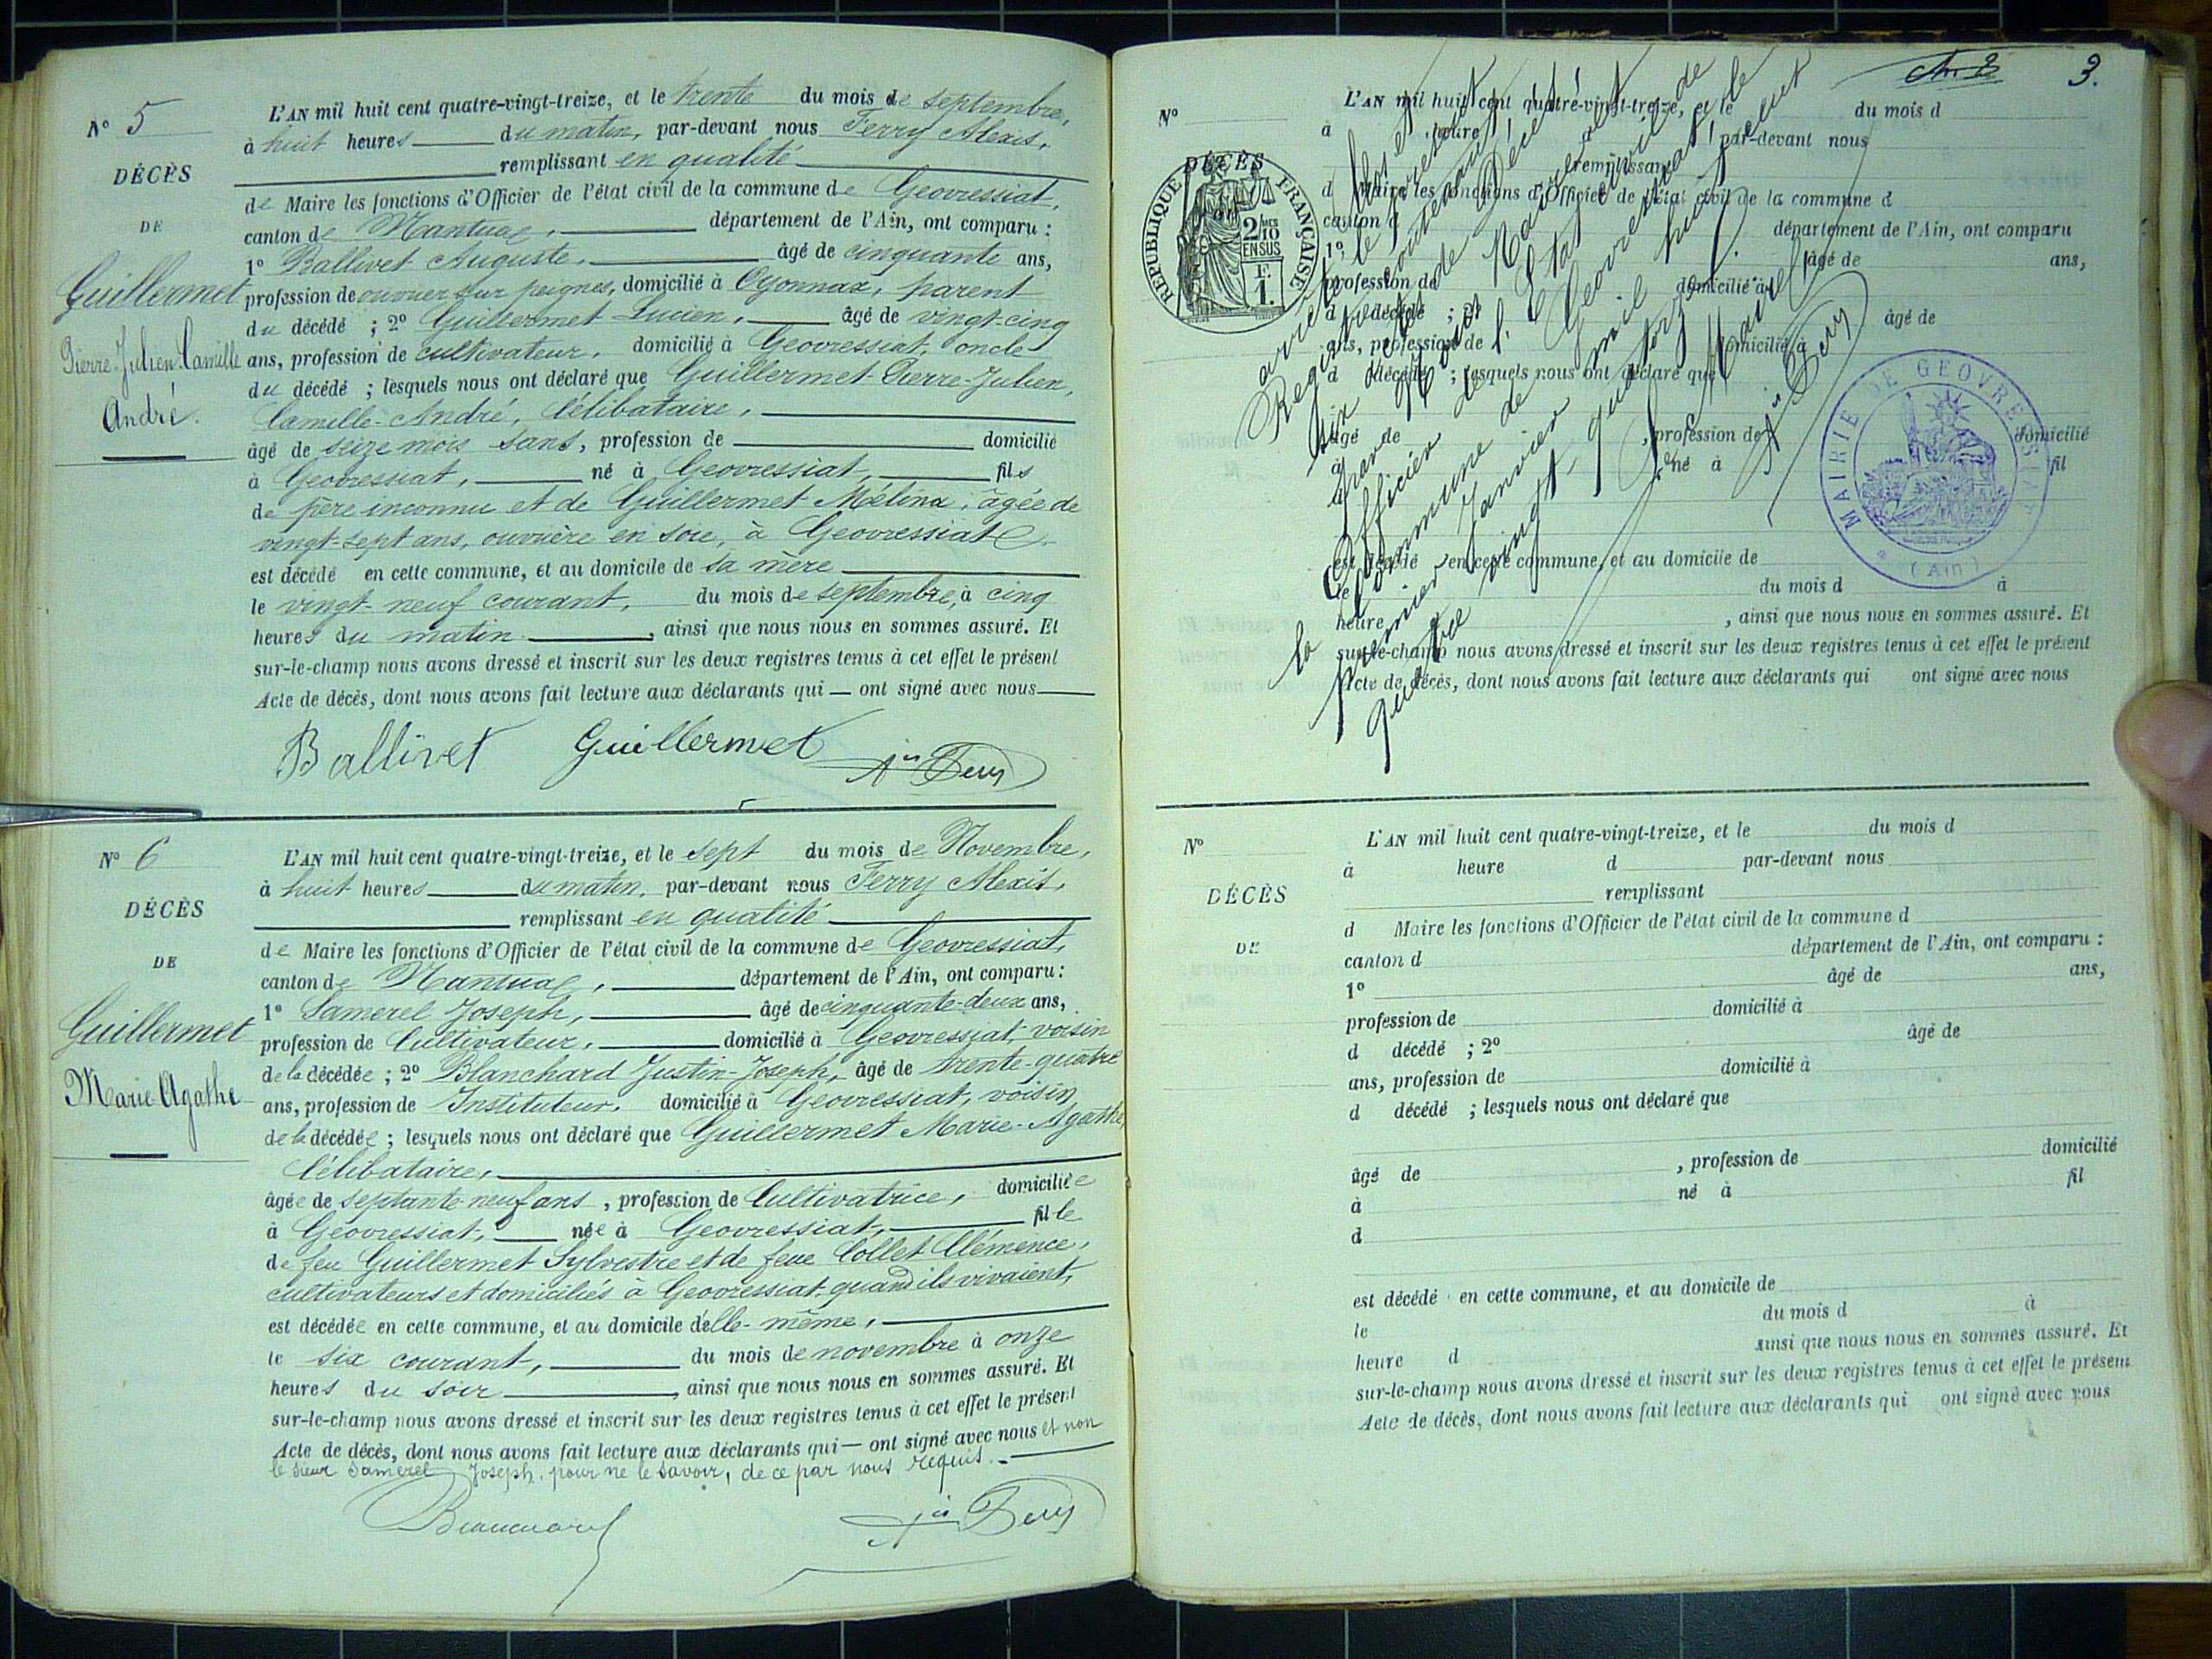 N° 5
DÉCÈS
DE
Guillermet
Pierre-Julien-Camille
André.
L'AN mil huit cent quatre-vingt-treize, et le trente du mois de septembre,
à huit heures du matin, par-devant nous Ferry Alexis,
remplissant en qualité
de Maire les fonctions d'Officier de l'état civil de la commune de Geovressiat,
canton de Nantua, département de l'Ain, ont comparu :
1° Ballivet Auguste, âgé de cinquante ans,
profession de ouvrier sur peignes, domicilié à Oyonnax, parent
du décédé ; 2° Guillermet Lucien, âgé de vingt-cinq
ans, profession de cultivateur, domicilié à Geovressiat, oncle
du décédé ; lesquels nous ont déclaré que Guillermet-Pierre-Julien,
Camille-André, Célibataire,
âgé de seize mois sans, profession de domicilié
à Geovressiat, né à Geovressiat, fils
de père inconnu et de Guillermet Mélina, âgée de
vingt-sept ans, ouvrière en soie, à Geovressiat
est décédé en cette commune, et au domicile de sa mère
le vingt-neuf courant, du mois de septembre, à cinq
heures du matin, ainsi que nous nous en sommes assuré. Et
sur-le-champ nous avons dressé et inscrit sur les deux registres tenus à cet effet le présent
Acte de décès, dont nous avons fait lecture aux déclarants qui — ont signé avec nous
Ballivet Guillermet Ais Ferry
N° 6
DÉCÈS
DE
Guillermet
Marie-Agathe
L'AN mil huit cent quatre-vingt-treize, et le sept du mois de Novembre,
à huit heures du matin, par-devant nous Ferry Alexis,
remplissant en qualité
de Maire les fonctions d'Officier de l'état civil de la commune de Geovressiat,
canton de Nantua, département de l'Ain, ont comparu :
1° Samerel Joseph, âgé de cinquante-deux ans,
profession de Cultivateur, domicilié à Geovressiat, voisin
de la décédée ; 2° Blanchard Justin-Joseph, âgé de trente-quatre
ans, profession de Instituteur, domicilié à Geovressiat, voisin
de la décédée ; lesquels nous ont déclaré que Guillermet Marie-Agathe,
Célibataire,
âgée de septante neuf ans, profession de Cultivatrice, domiciliée
à Geovressiat, née à Geovressiat, fille
de feu Guillermet Sylvestre et de feue Collet Clémence,
cultivateurs et domiciliés à Geovressiat quand ils vivaient,
est décédée en cette commune, et au domicile d'elle-même,
le six courant, du mois de novembre à onze
heures du soir, ainsi que nous nous en sommes assuré. Et
sur-le-champ nous avons dressé et inscrit sur les deux registres tenus à cet effet le présent
Acte de décès, dont nous avons fait lecture aux déclarants qui — ont signé avec nous et non
le sieur Samerel Joseph, pour ne le savoir, de ce par nous requis.
Blanchard Ais Ferry
3.
N°
DÉCÈS
RÉPUBLIQUE FRANÇAISE
2/10 EN SUS
1 F.
L'AN mil huit cent quatre-vingt-treize, et le du mois d
à heure par-devant nous
remplissant
d Maire les fonctions d'Officier de l'état civil de la commune d
canton d département de l'Ain, ont comparu
1° âgé de ans,
profession de domicilié à
d décédé ; 2° âgé de
ans, profession de domicilié à
d décédé ; lesquels nous ont déclaré que
âgé de , profession de domicilié
à né à fil
est décédé en cette commune, et au domicile de
le du mois d à
heure , ainsi que nous nous en sommes assuré. Et
sur-le-champ nous avons dressé et inscrit sur les deux registres tenus à cet effet le présent
Acte de décès, dont nous avons fait lecture aux déclarants qui ont signé avec nous
arrêté le présent
Registre contenant
six actes de Décès
par Nous Maire et
Officier de l'Etat Civil de
la Commune de Geovressiat, le
premier Janvier mil huit cent
quatre vingt-quatorze.
Le Maire,
Ais Ferry
MAIRIE DE GEOVRESSIAT
(Ain)
N°
DÉCÈS
DE
L'AN mil huit cent quatre-vingt-treize, et le du mois d
à heure d par-devant nous
remplissant
d Maire les fonctions d'Officier de l'état civil de la commune d
canton d département de l'Ain, ont comparu :
1° âgé de ans,
profession de domicilié à
d décédé ; 2° âgé de
ans, profession de domicilié à
d décédé ; lesquels nous ont déclaré que
âgé de , profession de domicilié
à né à fil
d
est décédé en cette commune, et au domicile de
le du mois d à
heure d ainsi que nous nous en sommes assuré. Et
sur-le-champ nous avons dressé et inscrit sur les deux registres tenus à cet effet le présent
Acte de décès, dont nous avons fait lecture aux déclarants qui ont signé avec nous